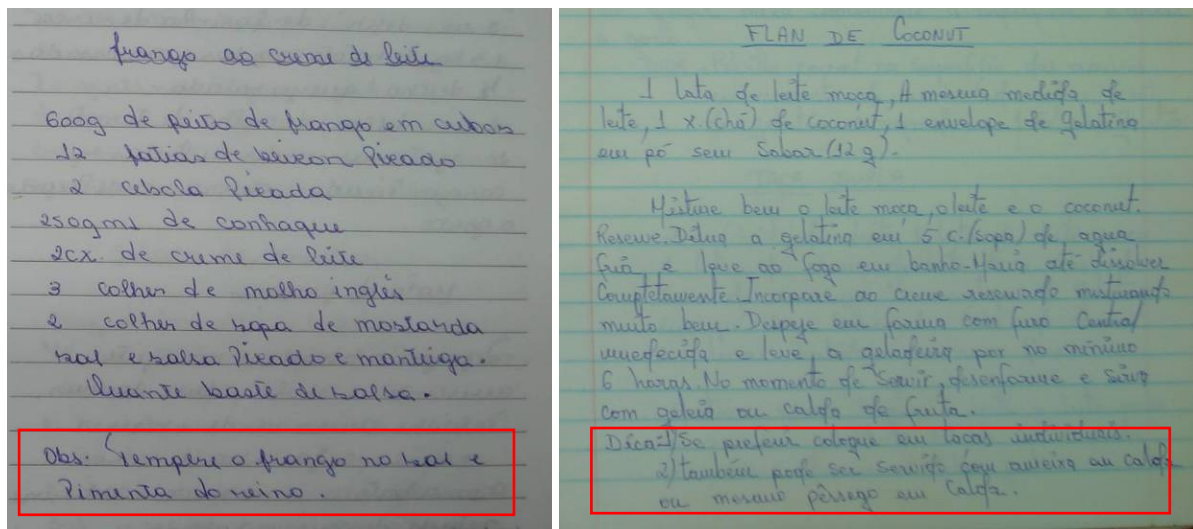 frango ao creme de leite
600g de peito de frango em cubos
12 fatias de beicon Picado
2 cebola Picada
250gml de conhaque
2cx. de creme de leite
3 colher de molho inglês
2 colher de sopa de mostarda
sal e salsa Picado e manteiga.
Quante baste de salsa.
Obs: Tempere o frango no sal e
Pimenta do reino.
FLAN DE COCONUT
1 lata de leite moça, A mesma medida de
leite, 1 x.(chá) de coconut, 1 envelope de gelatina
em pó sem Sabor (12 g).
Misture bem o leite moça, o leite e o coconut.
Reserve. Dilua a gelatina em 5 c.(sopa) de agua
fria e leve ao fogo em banho-Maria até dissolver
Completamente. Incorpore ao creme reservado misturando
muito bem. Despeje em forma com furo Central
umedecida e leve, a geladeira por no mínimo
6 horas. No momento de Servir, desenforme e Sirva
com geleia ou calda de fruta.
Dica=1) Se preferir coloque em tacas individuais.
2) também pode ser servido com ameixa au calda
ou mesmo pêssego em Calda.